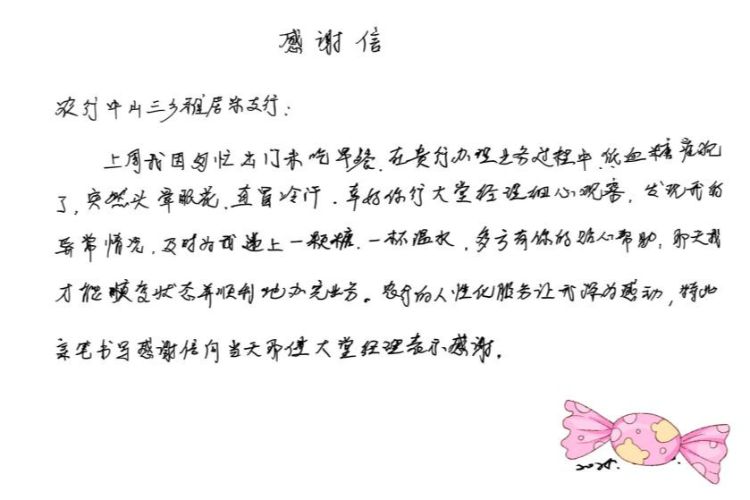 感谢信
农行中山三乡雅居乐支行:
上周我因匆忙出门未吃早餐,在贵行办理业务过程中,低血糖犯
了,突然头晕眼花,直冒冷汗。幸好你行大堂经理细心观察,发现我的
异常情况,及时为我递上一颗糖,一杯温水,多亏有你的贴心帮助,那天我
才能恢复状态并顺利地办完业务。农行的人性化服务让我深为感动,特此
亲笔书写感谢信向当天那位大堂经理表示感谢。
2025.